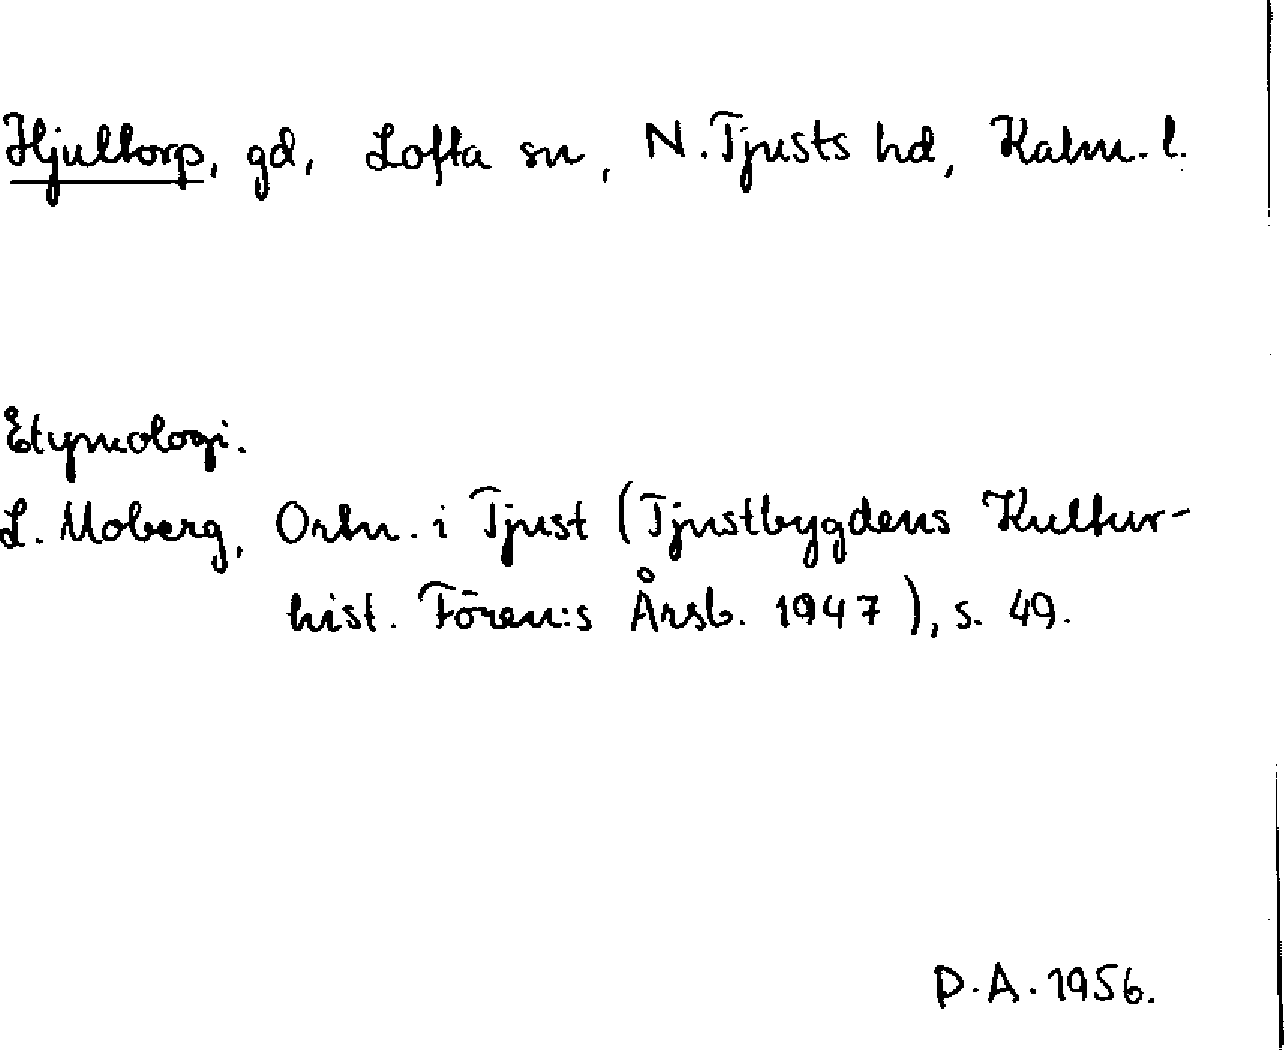 Hjultorp, gd, Lofta sn, N. Tjusts hd, Kalm. l.
Etymologi.
L. Moberg, Ortn. i Tjust (Tjustbygdens Kultur-
hist. Fören:s Årsb. 1947), s. 49.
D.A. 1956.